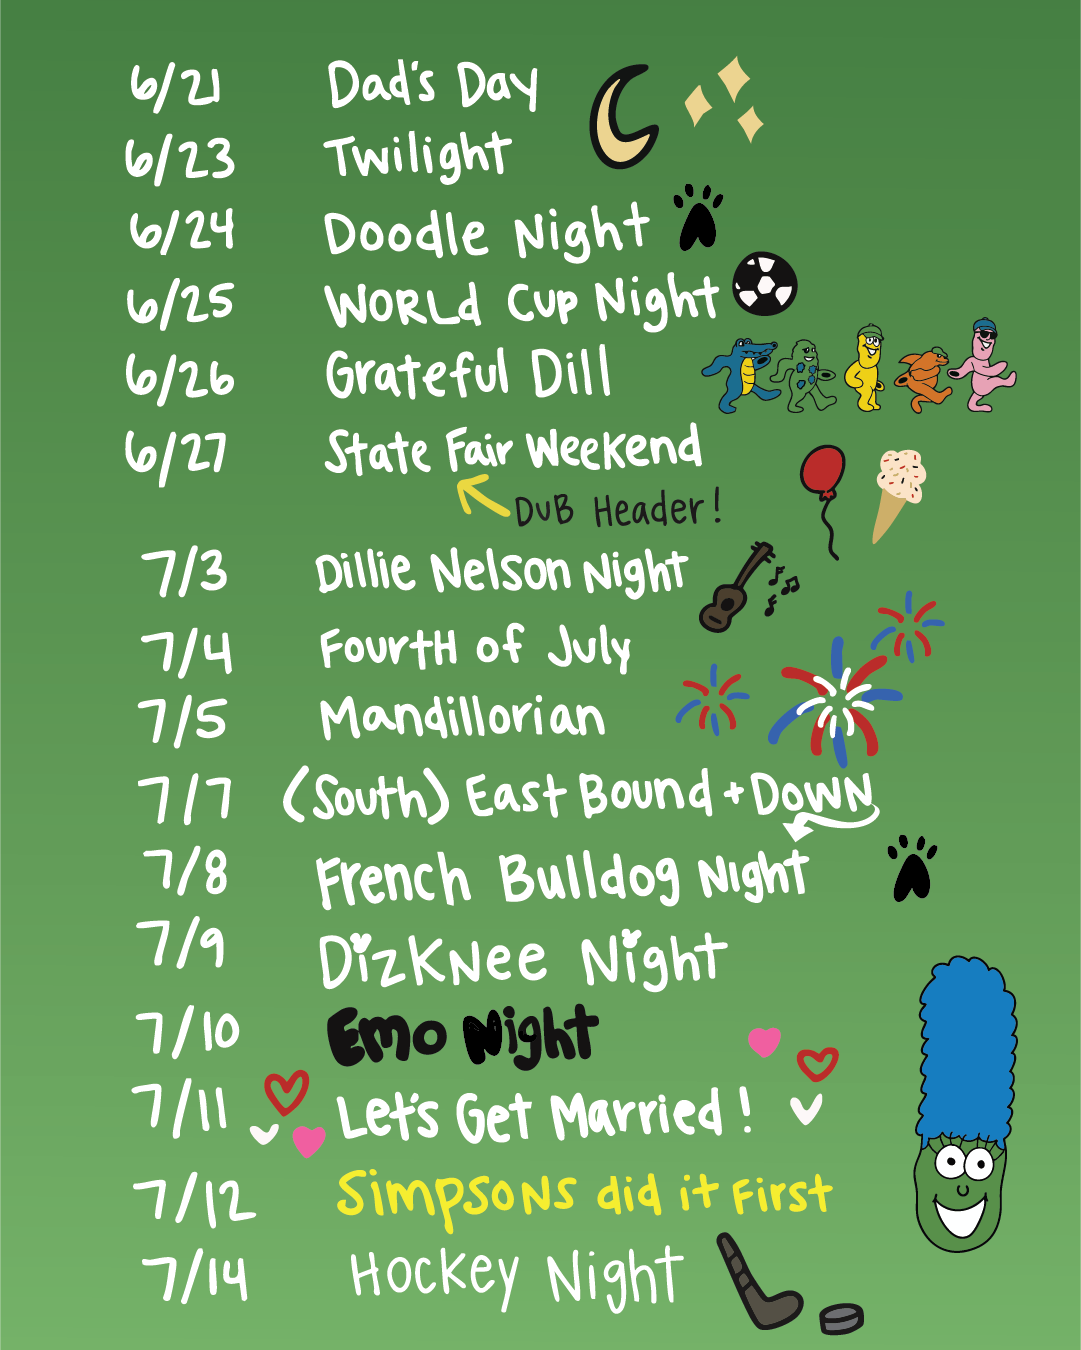 6/21 Dad's Day
6/23 Twilight
6/24 Doodle Night
6/25 WORLd Cup Night
6/26 Grateful Dill
6/27 State Fair Weekend
DuB Header!
7/3 Dillie Nelson Night
7/4 FourtH of July
7/5 Mandillorian
7/7 (South) East Bound + DowN
7/8 French Bulldog Night
7/9 DizKNee Night
7/10 Emo Night
7/11 Let's Get Married!
7/12 SimpsoNs did it First
7/14 Hockey Night